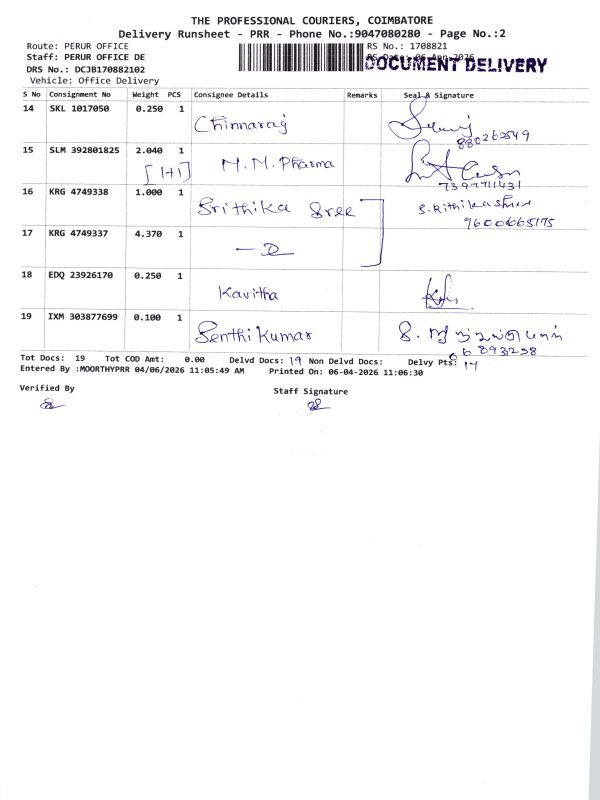 THE PROFESSIONAL COURIERS, COIMBATORE
Delivery Runsheet - PRR - Phone No.:9047080280 - Page No.:2
Route: PERUR OFFICE RS No.: 1708821
Staff: PERUR OFFICE DE
DOCUMENT DELIVERY
DRS No.: DCJB170882102
Vehicle: Office Delivery
S No Consignment No Weight PCS Consignee Details Remarks Seal & Signature
14 SKL 1017050 0.250 1 Chinnaraj
15 SLM 392801825 2.040 1 [1+1] M.M. Pharma
7397711431
16 KRG 4749338 1.000 1 Srithika Sree
9600665175
17 KRG 4749337 4.370 1
18 EDQ 23926170 0.250 1 Kavitha
19 IXM 303877699 0.100 1 Senthi Kumar
Tot Docs: 19 Tot COD Amt: 0.00 Delvd Docs: 19 Non Delvd Docs: Delvy Pts: 14
Entered By :MOORTHYPRR 04/06/2026 11:05:49 AM Printed On: 06-04-2026 11:06:30
Verified By Staff Signature